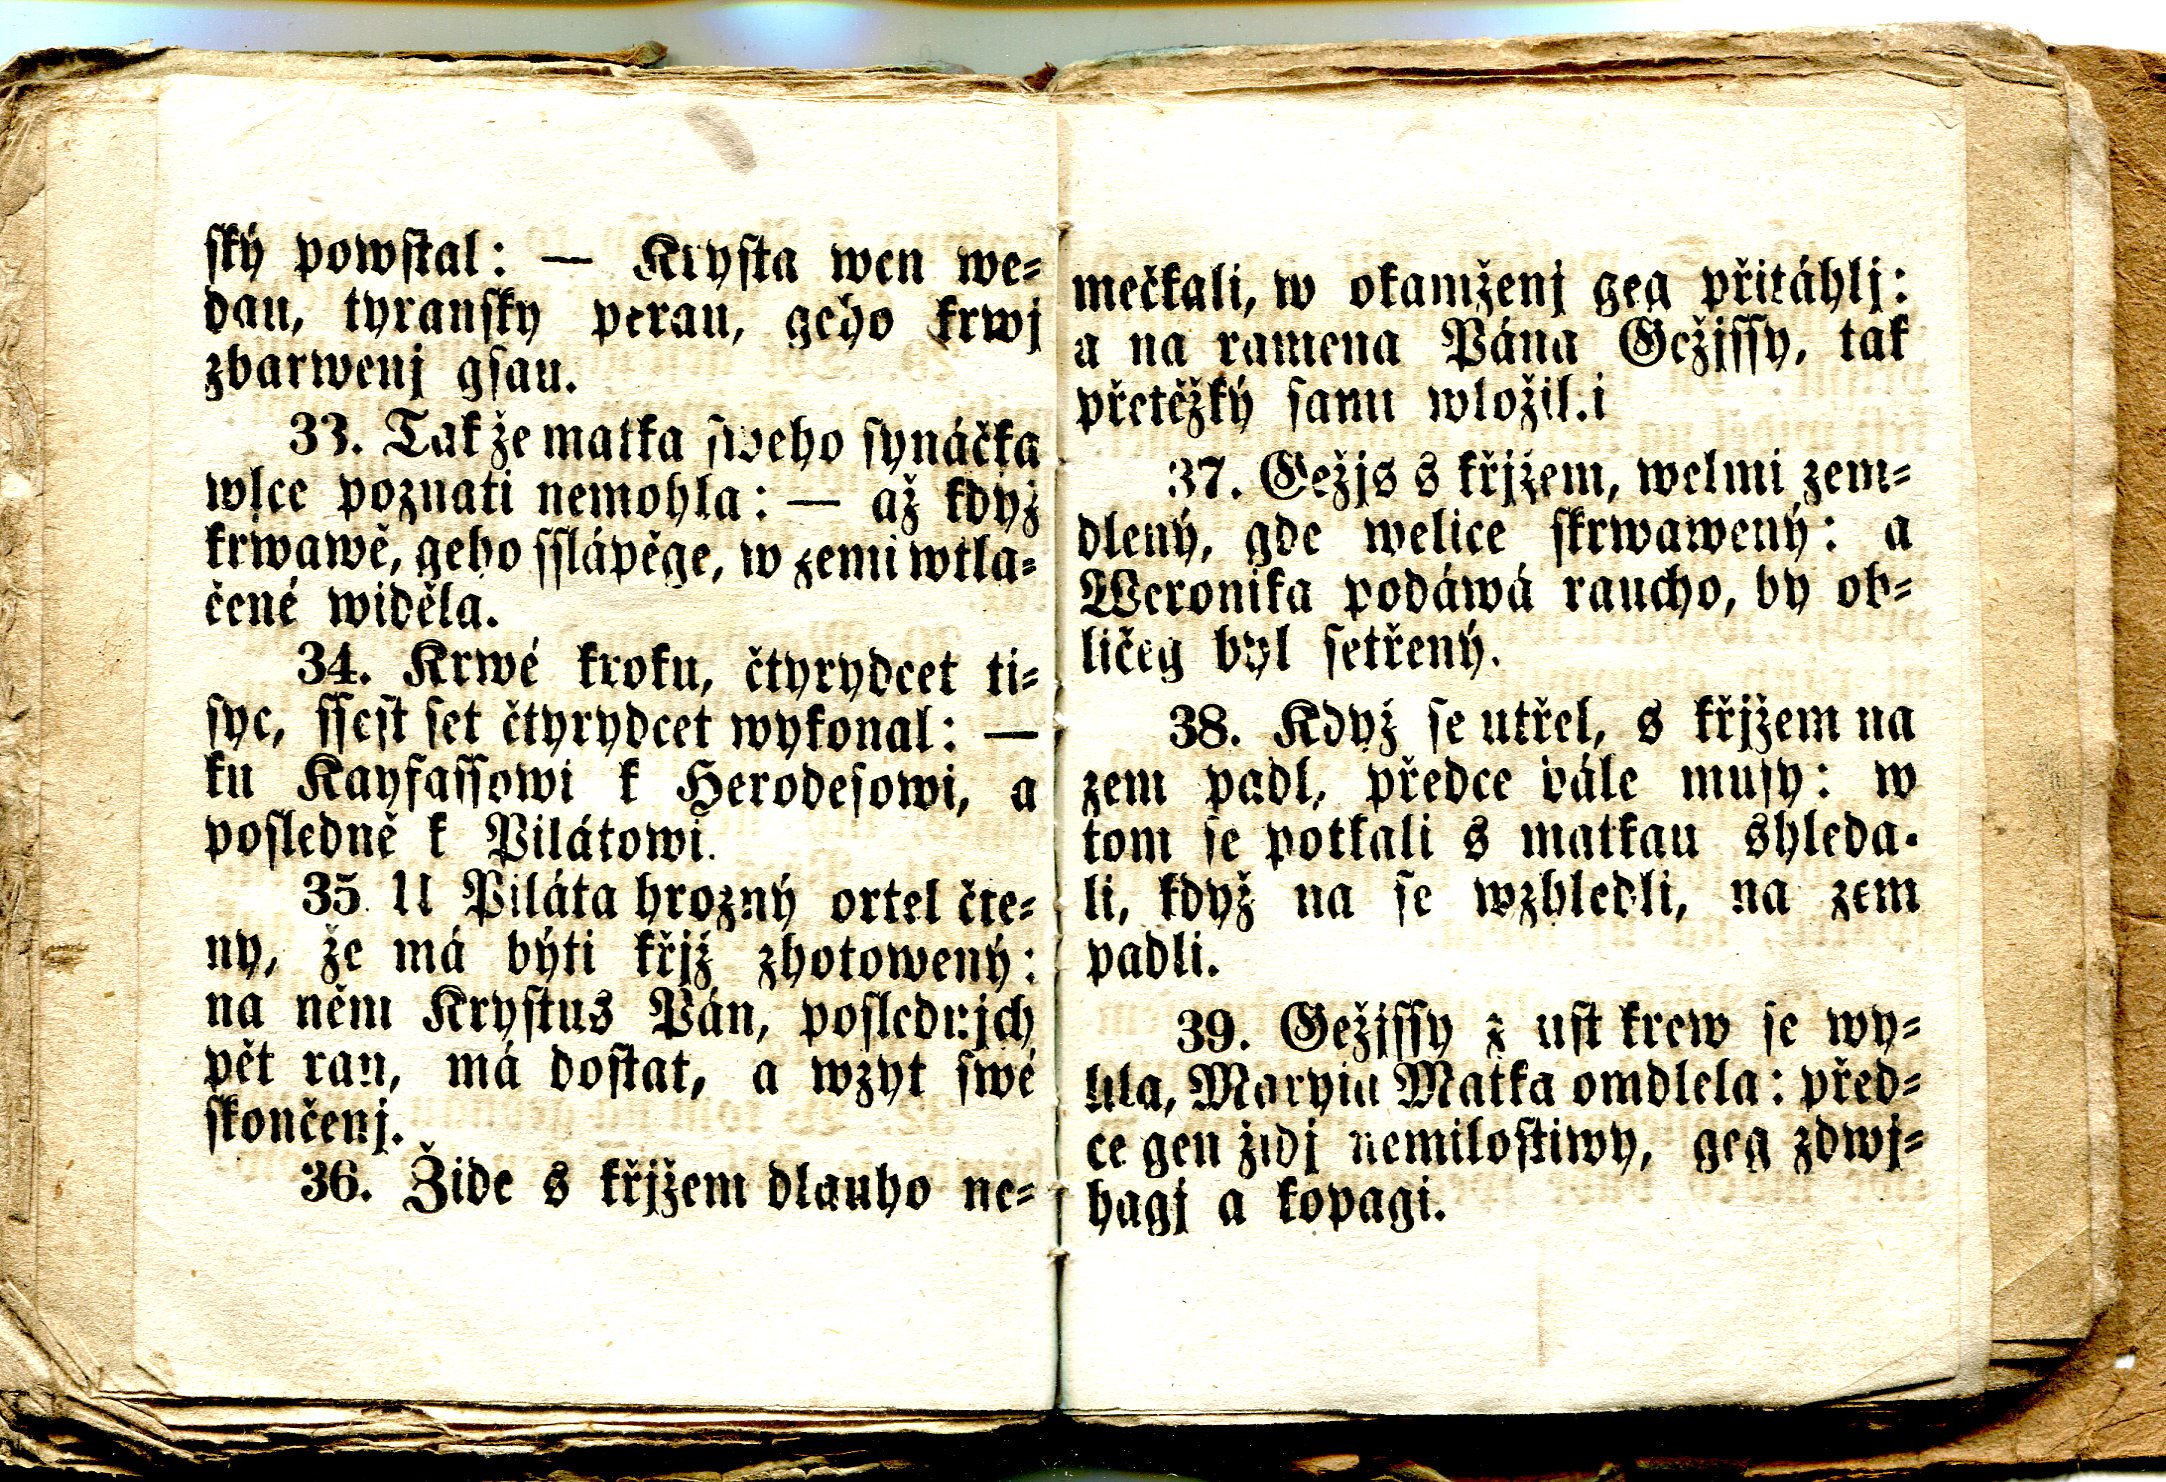 ský powstal: — Krysta wen we=
dau, tyransky perau, geho krwj
zbarwenj gsau.
33. Takže matka sweho synáčka
wlce poznati nemohla: — až když
krwawě, geho sslápěge, w zemi wtla=
čené widěla.
34. Krwé kroku, čtyrydcet ti=
syc, ssest set čtyrydcet wykonal: —
ku Kayfassowi k Herodesowi, a
posledně k Pilátowi.
35. U Piláta hrozný ortel čte=
ny, že má býti křjž zhotowený:
na něm Krystus Pán, poslednjch
pět ran, má dostat, a wzyt swé
skončenj.
36. Žide s křjžem dlauho ne=
mečkali, w okamženj geg přitáhlj:
a na ramena Pána Gežjssy, tak
přetěžký samu wložil.i
37. Gežjs s křjžem, welmi zem=
dlený, gde welice skrwawený: a
Weronika podáwá raucho, by ob=
ličeg byl setřený.
38. Když se utřel, s křjžem na
zem padl, předce dále musy: w
tom se potkali s matkau shleda.
li, když na se wzhledli, na zem
padli.
39. Gežjssy z ust krew se wy=
lila, Maryia Matka omdlela: před=
ce gen židj nemilostiwy, geg zdwj=
hagj a kopagi.